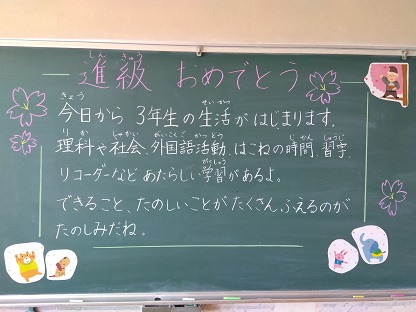 進級 おめでとう
今日から 3年生の生活が はじまります。
理科や社会、外国語活動、はこねの時間、習字、
リコーダーなど あたらしい学習があるよ。
できること、たのしいことが たくさん ふえるのが
たのしみだね。